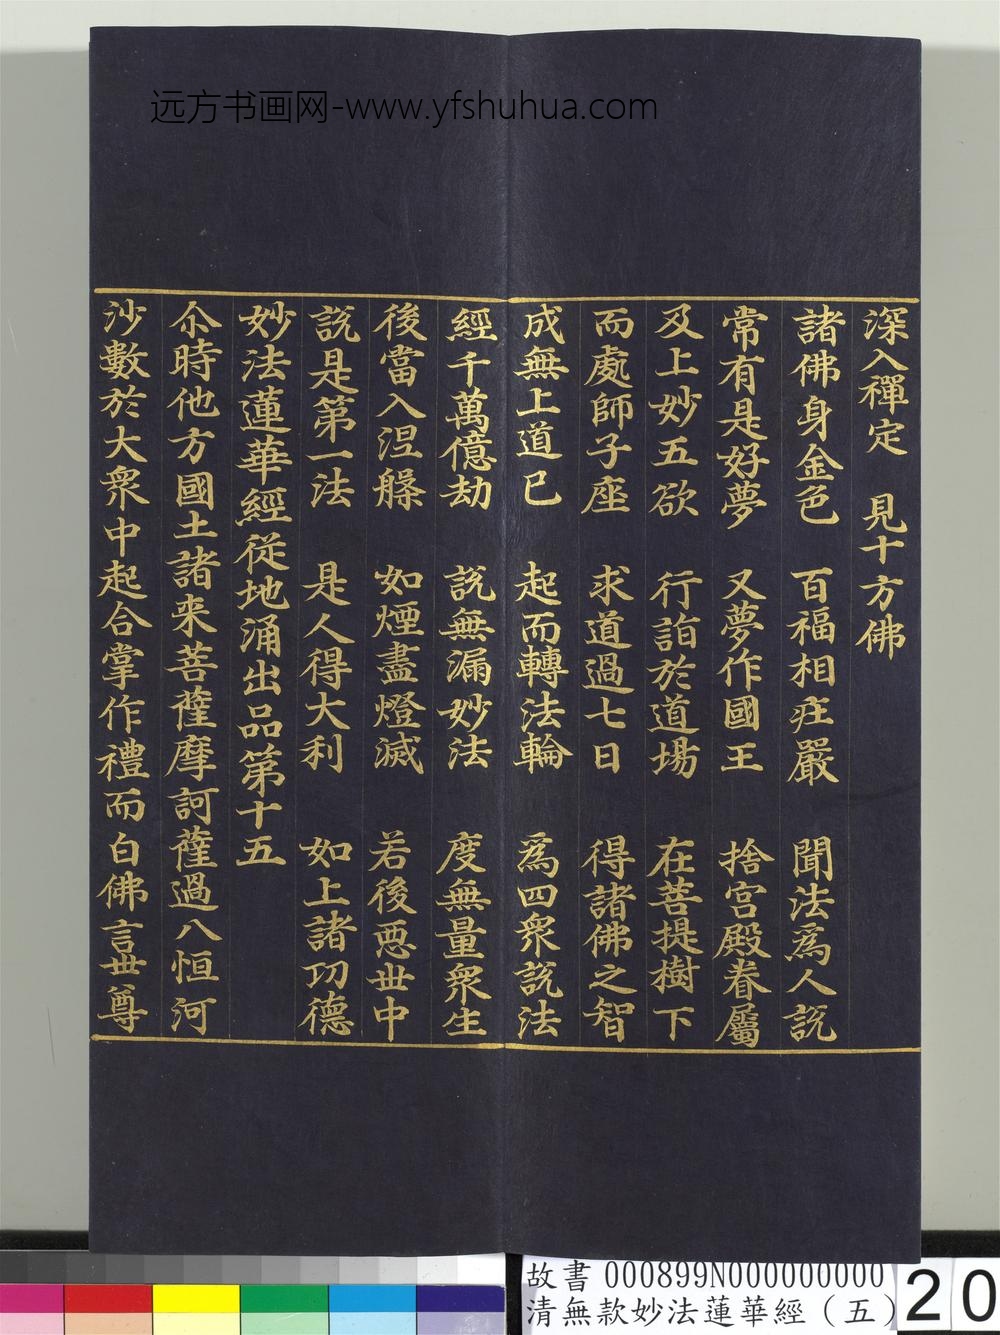 远方书画网-www.yfshuhua.com
深入禪定　見十方佛
諸佛身金色　百福相㽵嚴　聞法為人説
常有是好夢　又夢作國王　捨宮殿眷屬
及上妙五欲　行詣於道場　在菩提樹下
而處師子座　求道過七日　得諸佛之智
成無上道已　起而轉法輪　為四衆説法
經千萬億劫　説無漏妙法　度無量衆生
後當入涅槃　如煙盡燈滅　若後惡世中
説是第一法　是人得大利　如上諸功德
妙法蓮華經從地涌出品第十五
尒時他方國土諸来菩薩摩訶薩過八恒河
沙數於大衆中起合掌作禮而白佛言世尊
故書 000899N000000000
清無款妙法蓮華經（五）
20